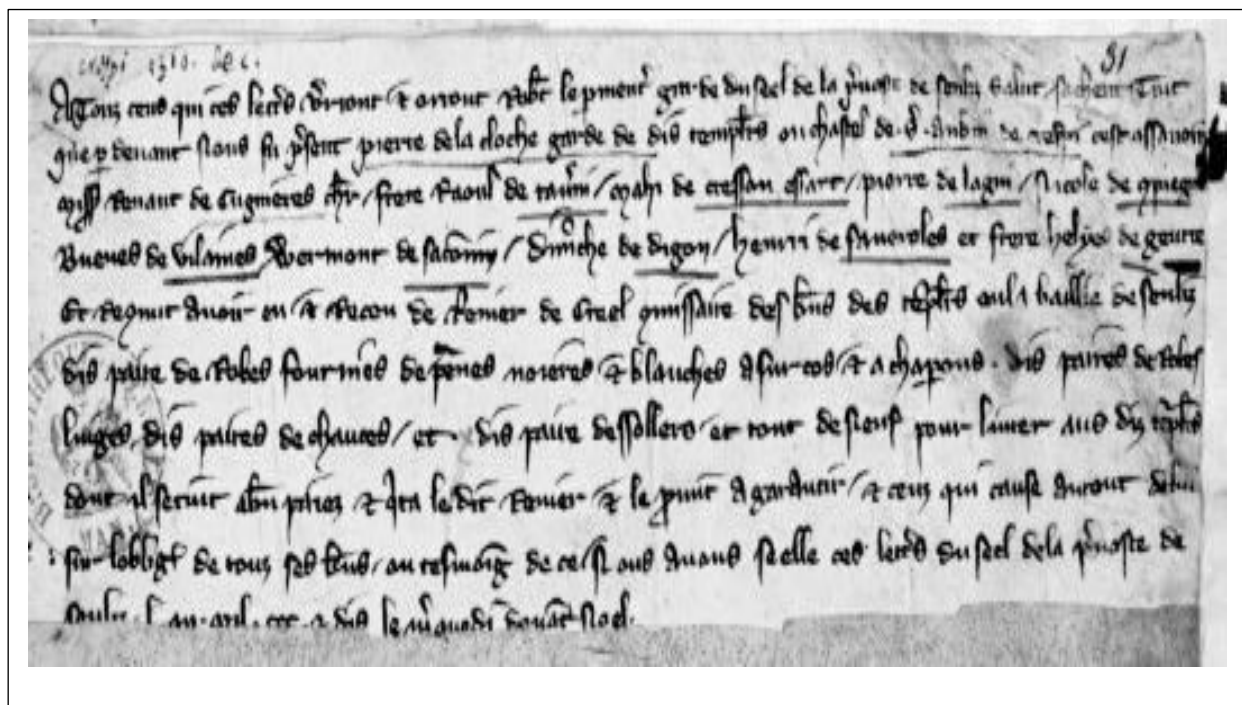 31
A Touz ceus qui ces lettrs verront & orront Robt le pment garde du seel de la pruoste de senliz salut sachent Tuit
que p deuant Nous fu present pierre de la cloche garde de dis templrs ou chastel de s. aubin de cest assauoir
Renaut de Cugnieres chr / frere Raoul de tauerni / mahi de cresson essart / pierre de lagni / Nicole de
Bueues de vilaines Wermont de saconin / dimche de digon / henrri de faueroles et frere helyes de
Et Requnt auoir eu & Receu de Renier de Creel des biens des templrs en la baillie de senliz
dis paire de Robes fourrnies de pennes noieres & blanches a surcos & a chaperons . dis paires de Robes
linges dis paires de chauces / et . dis paire dessollers et tout de neuf pour liurer aus diz templrs
dont il se tuit abn & quita le dit Renier & le pmit a garantir / & ceus qui cause auront de lui
sur lobligt de touz ses biens / ou tesmoing de ce nous auons seelle ces lettrs du seel de la pruoste de
senliz . lan . mil . ccc . & dis le mquedi deuant Noel .